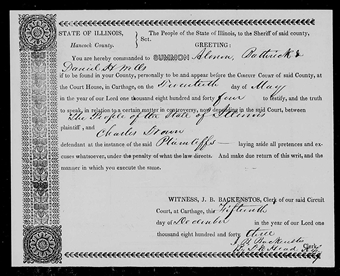 STATE OF ILLINOIS,
Hancock County.
Sct.
The People of the State of Illinois, to the Sheriff of said county,
GREETING:
You are hereby commanded to SUMMON
Daniel H. Wells
if to be found in your County, personally to be and appear before the Circuit Court of said County, at
the Court House, in Carthage, on the day of May
in the year of our Lord one thousand eight hundred and forty four to testify, and the truth
to speak, in relation to a certain matter in controversy, now depending in the said Court, between
The People of the State of Illinois
plaintiff, and Charles
defendant at the instance of the said Plaintiffs— laying aside all pretences and ex-
cuses whatsoever, under the penalty of what the law directs. And make due return of this writ, and the
manner in which you execute the same.
WITNESS, J. B. BACKENSTOS, Clerk of our said Circuit
Court, at Carthage, this fifteenth
day of December in the year of our Lord one
thousand eight hundred and forty three
J B Backenstos Clerk